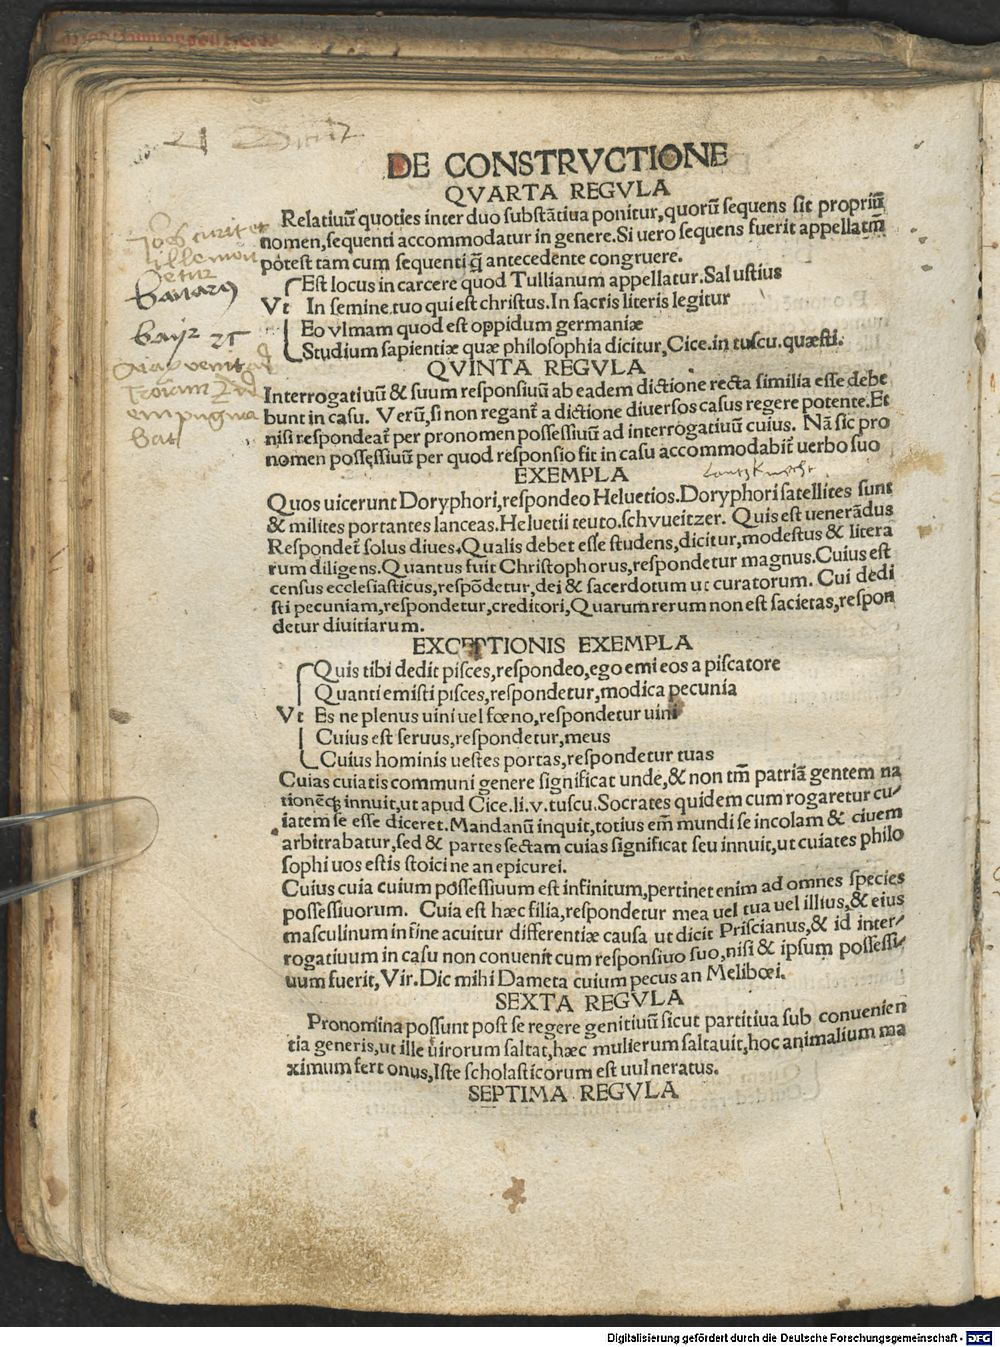 DE CONSTRVCTIONE
QVARTA REGVLA
Relatiuũ quoties inter duo substãtiua ponitur, quorũ sequens sit propriũ
nomen, sequenti accommodatur in genere. Si uero sequens fuerit appellatiũ
potest tam cum sequenti q̃ antecedente congruere.
Est locus in carcere quod Tullianum appellatur. Salustius
Vt In semine tuo qui est christus. In sacris literis legitur
Eo vlmam quod est oppidum germaniæ
Studium sapientiæ quæ philosophia dicitur, Cice. in tuscu. quæsti.
QVINTA REGVLA
Interrogatiuũ & suum responsiuũ ab eadem dictione recta similia esse debe
bunt in casu. Verũ, si non regant̃ a dictione diuersos casus regere potente. Et
nisi respondeat̃ per pronomen possessiuũ ad interrogatiuũ cuius. Nã sic pro
nomen possessiuũ per quod responsio fit in casu accommodabit̃ uerbo suo
EXEMPLA
Quos uicerunt Doryphori, respondeo Heluetios. Doryphori satellites sunt
& milites portantes lanceas. Heluetii teuto. schvueitzer. Quis est uenerãdus
Respondet̃ solus diues. Qualis debet esse studens, dicitur, modestus & litera
rum diligens. Quantus fuit Christophorus, respondetur magnus. Cuius est
census ecclesiasticus, respõdetur, dei & sacerdotum ut curatorum. Cui dedi
sti pecuniam, respondetur, creditori, Quarum rerum non est sacietas, respon
detur diuitiarum.
EXCEPTIONIS EXEMPLA
Quis tibi dedit pisces, respondeo, ego emi eos a piscatore
Quanti emisti pisces, respondetur, modica pecunia
Vt Es ne plenus uini uel fœno, respondetur uini
Cuius est seruus, respondetur, meus
Cuius hominis uestes portas, respondetur tuas
Cuias cuiatis communi genere significat unde, & non tm̃ patriã gentem na
tionẽq; innuit, ut apud Cice. li. v. tuscu. Socrates quidem cum rogaretur cu/
iatem se esse diceret. Mandanũ inquit, totius em̃ mundi se incolam & ciuem
arbitrabatur, sed & partes sectam cuias significat seu innuit, ut cuiates philo
sophi uos estis stoici ne an epicurei.
Cuius cuia cuium possessiuum est infinitum, pertinet enim ad omnes species
possessiuorum. Cuia est hæc filia, respondetur mea uel tua uel illius, & eius
masculinum in fine acuitur differentiæ causa ut dicit Priscianus, & id inter/
rogatiuum in casu non conuenit cum responsiuo suo, nisi & ipsum possessi/
uum fuerit, Vir. Dic mihi Dameta cuium pecus an Melibœi.
SEXTA REGVLA
Pronomina possunt post se regere genitiuũ sicut partitiua sub conuenien
tia generis, ut ille uirorum saltat, hæc mulierum saltauit, hoc animalium ma
ximum fert onus, Iste scholasticorum est uulneratus.
SEPTIMA REGVLA
Digitalisierung gefördert durch die Deutsche Forschungsgemeinschaft - DFG